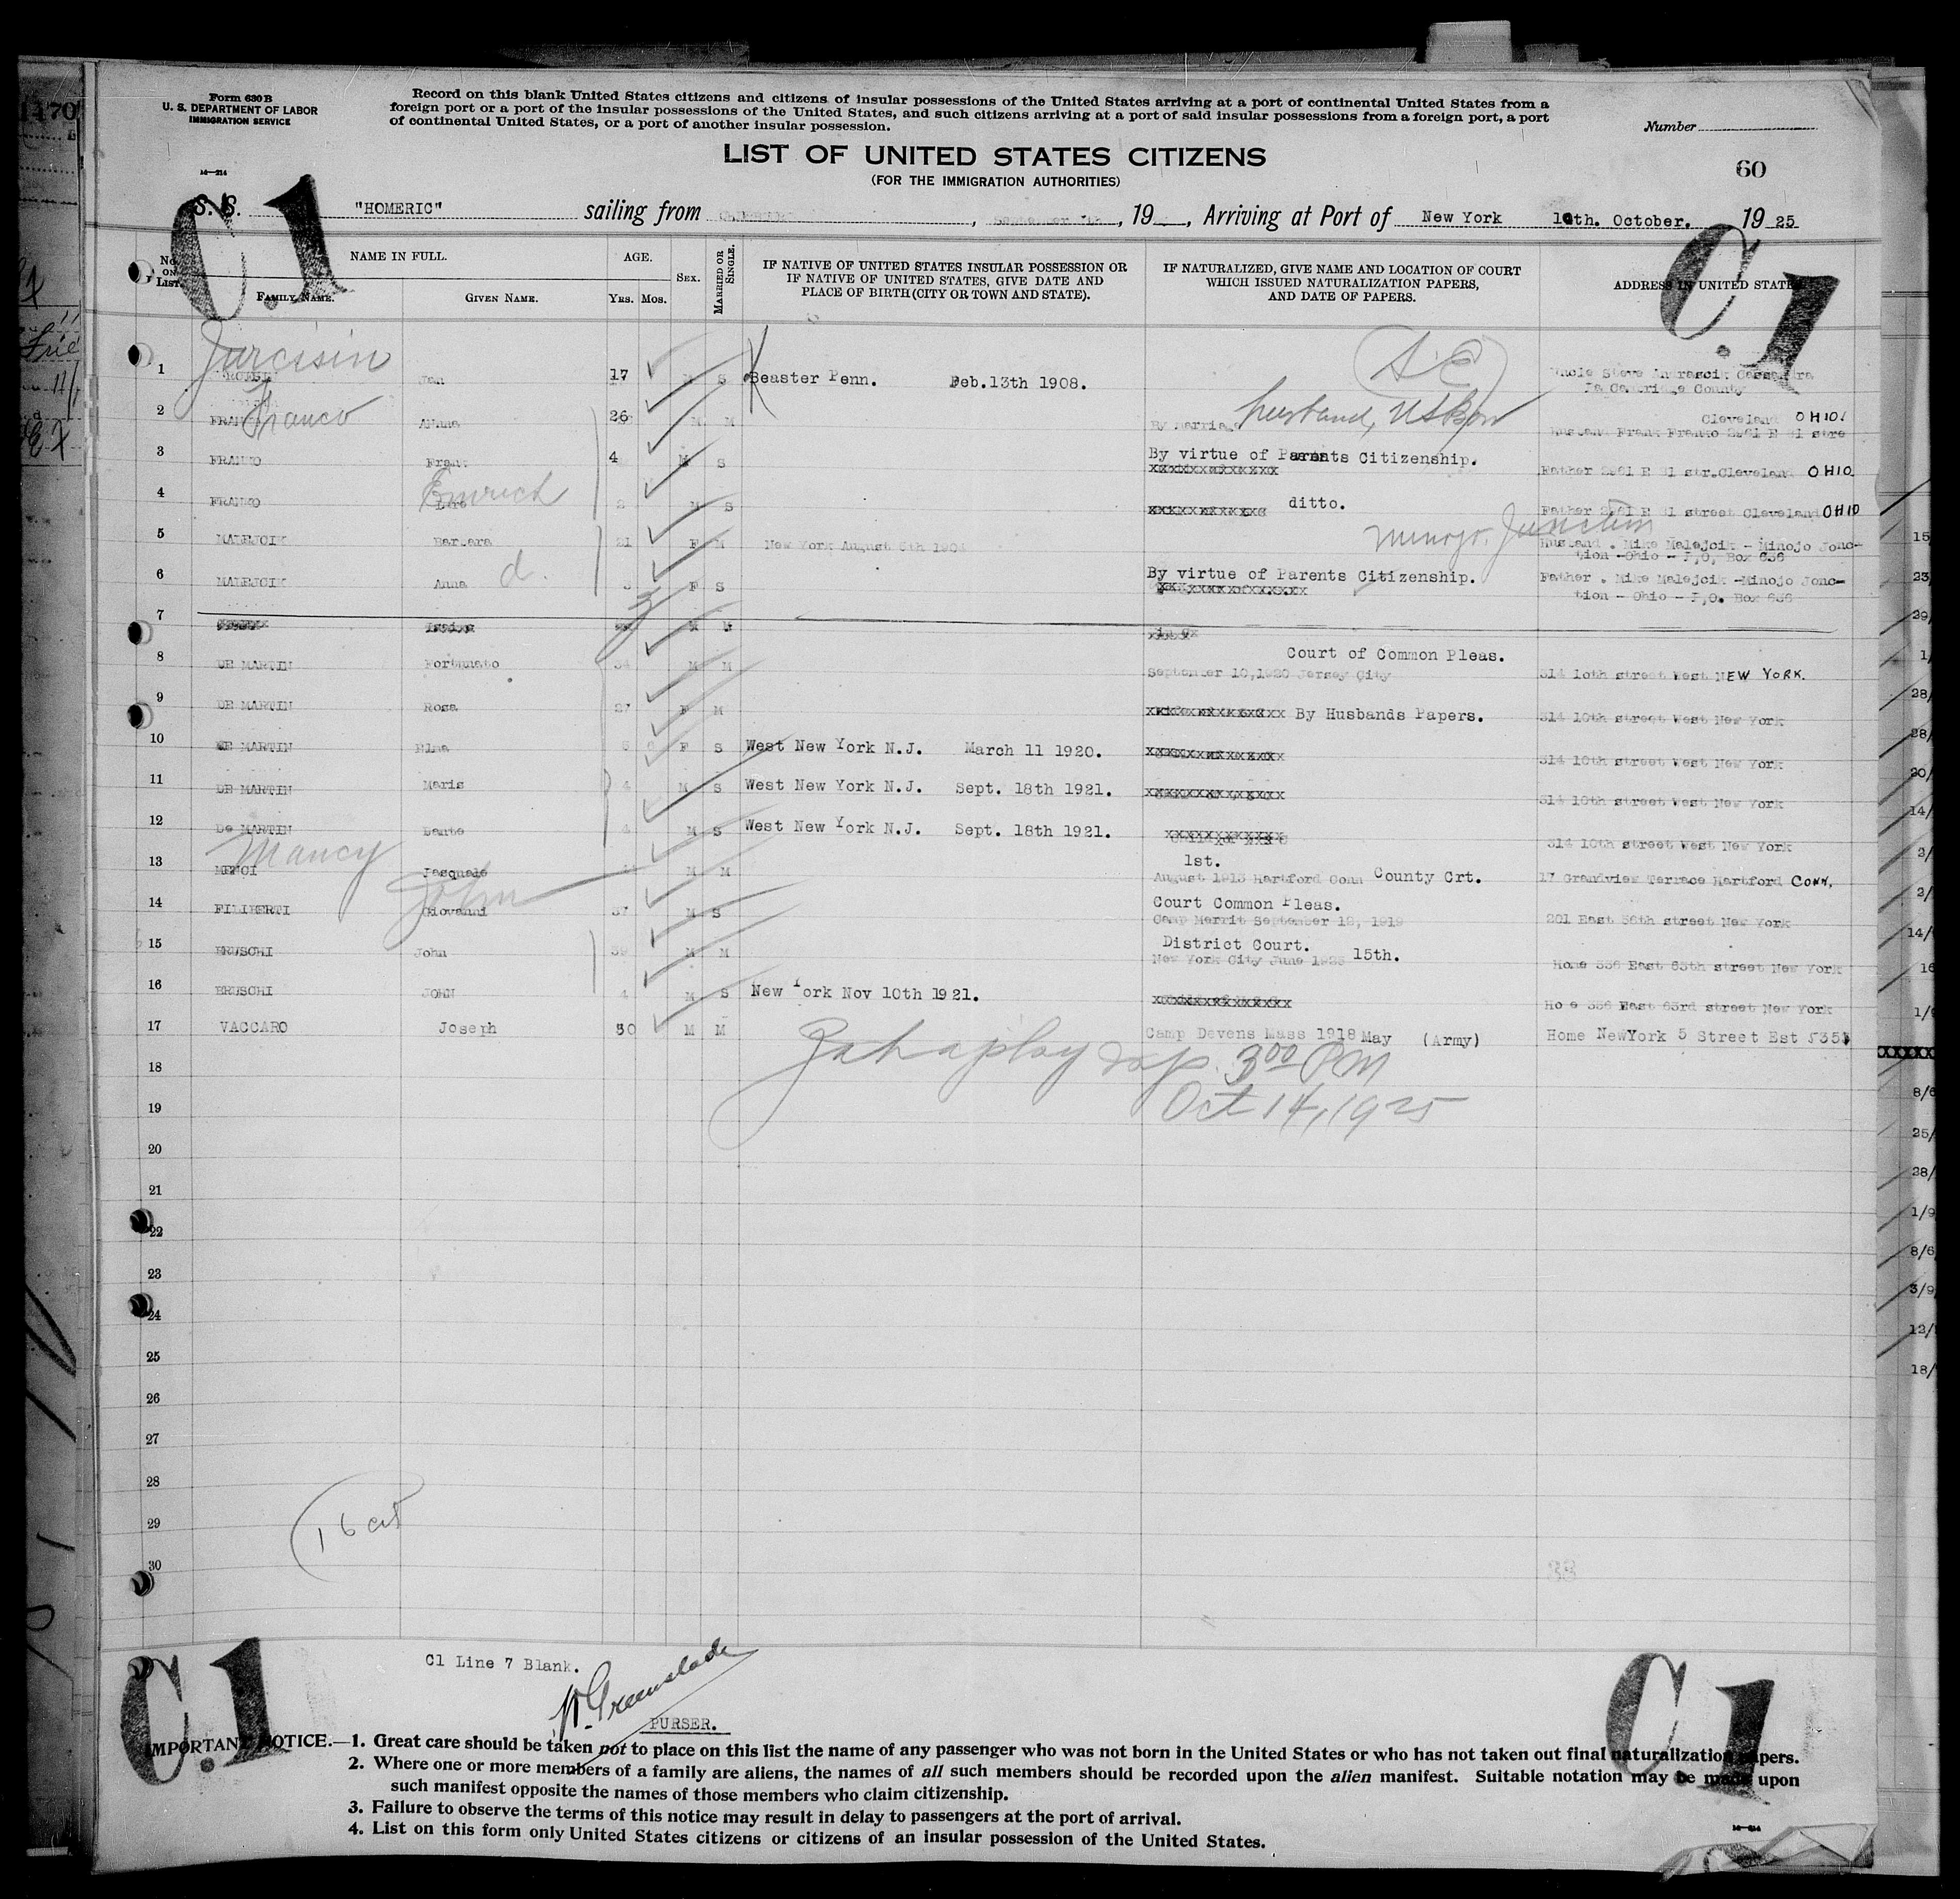 1470
Form 630 B
U. S. DEPARTMENT OF LABOR
IMMIGRATION SERVICE
14—214
Record on this blank United States citizens and citizens of insular possessions of the United States arriving at a port of continental United States from a
foreign port or a port of the insular possessions of the United States, and such citizens arriving at a port of said insular possessions from a foreign port, a port
of continental United States, or a port of another insular possession.
Number
LIST OF UNITED STATES CITIZENS
(FOR THE IMMIGRATION AUTHORITIES)
60
C.1
C.1
S. S. "HOMERIC" sailing from , September , 19 , Arriving at Port of New York 14th. October. 19 25
No. ON LIST
NAME IN FULL.
FAMILY NAME.
GIVEN NAME.
AGE.
YRS. MOS.
SEX.
MARRIED OR SINGLE.
IF NATIVE OF UNITED STATES INSULAR POSSESSION OR
IF NATIVE OF UNITED STATES, GIVE DATE AND
PLACE OF BIRTH (CITY OR TOWN AND STATE).
IF NATURALIZED, GIVE NAME AND LOCATION OF COURT
WHICH ISSUED NATURALIZATION PAPERS,
AND DATE OF PAPERS.
ADDRESS IN UNITED STATES
Jurcisin
1 17 M S Beaster Penn. Feb.13th 1908. Uncle Steve
County
2 FRANKO Franco Anna 26 M By marriage husband, Cleveland OHIO.
Husband Frank Franko 2961 E 81 stre
3 FRANKO Frank 4 M S By virtue of Parents Citizenship. Father 2961 E 81 str.Cleveland OHIO
4 FRANKO Emrich M S ditto. Father 2961 E 81 street Cleveland OHIO
Minojo. Junction
5 MALEJCIK Barbara 21 F M New York August 6th Husband . Mike Malejcik - Minojo Jonc-
tion -Ohio - P,O, Box 636
6 MALEJCIK Anna d. 3 F S By virtue of Parents Citizenship. Father . Mike Malejcik -Minojo Jonc-
tion - Ohio - P,O. Box 636
7 M M
Court of Common Pleas.
8 DE MARTIN Fortunato 34 M M September 10,1920 Jersey City 314 10th street West NEW YORK.
9 DE MARTIN Rosa 27 F M By Husbands Papers. 314 10th street West New York
10 DE MARTIN Elsa 5 6 F S West New York N.J. March 11 1920. 314 10th street West New York
11 DE MARTIN Maris 4 M S West New York N.J. Sept. 18th 1921. 314 10th street West New York
12 De MARTIN Dante 4 M S West New York N.J. Sept. 18th 1921. 314 10th street West New York
Mancy
1st.
13 MENCI Pasquale M M August 1913 Hartford Conn County Crt. 17 Grandview Terrace Hartford CONN.
John
Court Common Pleas.
14 FILIBERTI Giovanni 37 M S Camp Merrit September 12, 1919 201 East 36th street New York
District Court.
15 BRUSCHI John 39 M M New York City June 15th. Home 336 East 63th street New York
16 BRUSCHI JOHN 4 M S New York Nov 10th 1921. Home 336 East 63rd street New York
17 VACCARO Joseph 30 M M Camp Devens Mass 1918 May (Army) Home NewYork 5 Street Est 535
3 00 PM
Oct 14, 1925
18
19
20
21
22
23
24
25
26
27
28
29
30
Cl Line 7 Blank.
W. Greenslade
PURSER.
C.1
C.1
IMPORTANT NOTICE.—1. Great care should be taken not to place on this list the name of any passenger who was not born in the United States or who has not taken out final naturalization papers.
2. Where one or more members of a family are aliens, the names of all such members should be recorded upon the alien manifest. Suitable notation may be made upon
such manifest opposite the names of those members who claim citizenship.
3. Failure to observe the terms of this notice may result in delay to passengers at the port of arrival.
4. List on this form only United States citizens or citizens of an insular possession of the United States.
14—214